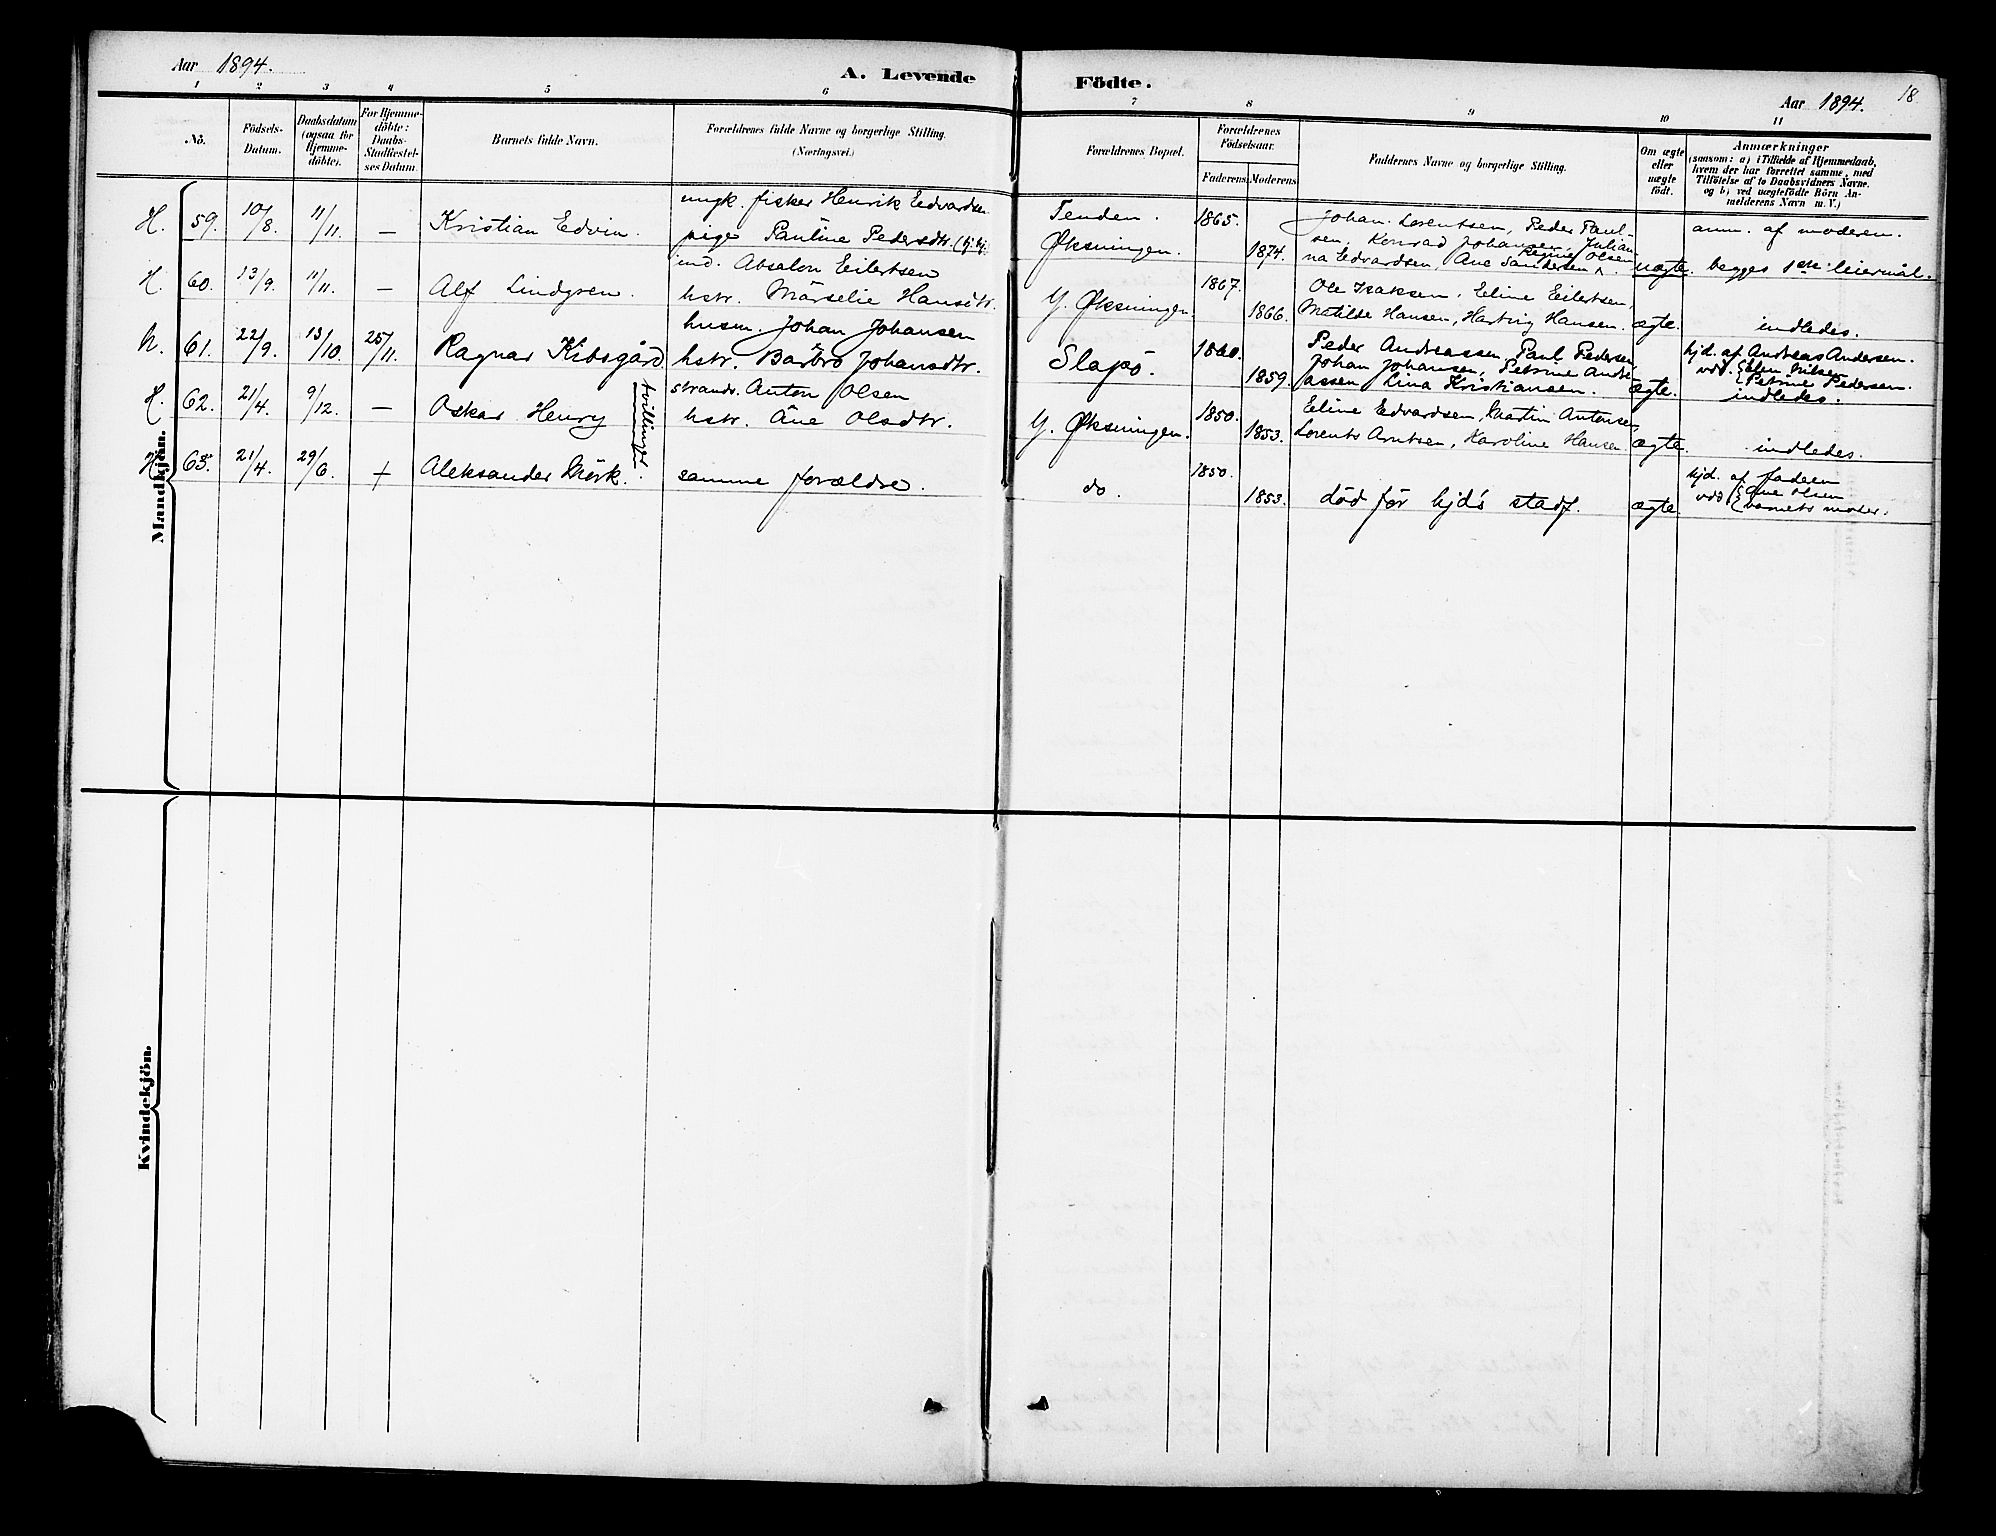 Aar 1894.
A. Levende Födte.
Aar 1894. 18.
1 2 3 4 5 6 7 8 9 10 11
No.
Födsels-Datum.
Daabsdatum (ogsaa for Hjemmedöbte).
For Hjemmedöbte: Daabs-Stadfestelses Datum.
Barnets fulde Navn.
Forældrenes fulde Navne og borgerlige Stilling. (Næringsvei.)
Forældrenes Bopæl.
Forældrenes Födselsaar.
Faderens Moderens
Faddernes Navne og borgerlige Stilling.
Om ægte eller uægte födt.
Anmærkninger
(saasom: a) i Tilfælde af Hjemmedaab,
hvem der har forrettet samme, med
Tilföielse af to Daabsvidners Navne,
og b) ved uægtefödte Börn An-
melderens Navn m. V.)
Mandkjön.
H. 59. 10/8. 11/11. — Kristian Edvin.
ungk. fisker Henrik Edvardsen
pige Pauline Pedersdtr.
Tenden.
Øksningen.
1865.
1874.
Johan Lorentsen, Peder Paul-
sen, Konrad Johansen, Julian-
na Edvardsen, Ane Sandersen, Regine Olsen
uægte.
anm. af moderen.
begges 1ste leiermål.
H. 60. 13/9. 11/11. — Alf Lindgren.
ind. Absalon Eilertsen
hstr. Marselie Hansdtr.
Y. Øksningen.
1867.
1866.
Ole Isaksen, Eline Eilertsen,
Matilde Hansen, Hartvig Hansen.
ægte.
indledes.
N. 61. 22/9. 13/10. 25/11. Ragnar Kibsgård
husm. Johan Johansen
hstr. Barbro Johansdtr.
Slapö.
1860.
1859.
Peder Andreassen, Paul Pedersen,
Johan Johansen, Petrine Andre-
assen Lina Kristiansen.
ægte.
hjd. af Andreas Andersen.
vdd. Elen Nilsen
Petrine Pedersen.
indledes.
H. 62. 21/4. 9/12. — Oskar Henry
tvillinger
strands. Anton Olsen
hstr. Ane Olsdtr.
Y. Øksningen.
1850.
1853.
Eline Edvardsen, Martin Antonsen,
Lorents Arntsen, Karoline Hansen
ægte.
indledes.
H. 63. 21/4. 29/6. + Aleksander Mörk.
samme forældre.
do.
1850.
1853.
död för hjd's stadf.
ægte
hjd. af faderen
vdd Ane Olsen
barnets moder.
Kvindekjön.